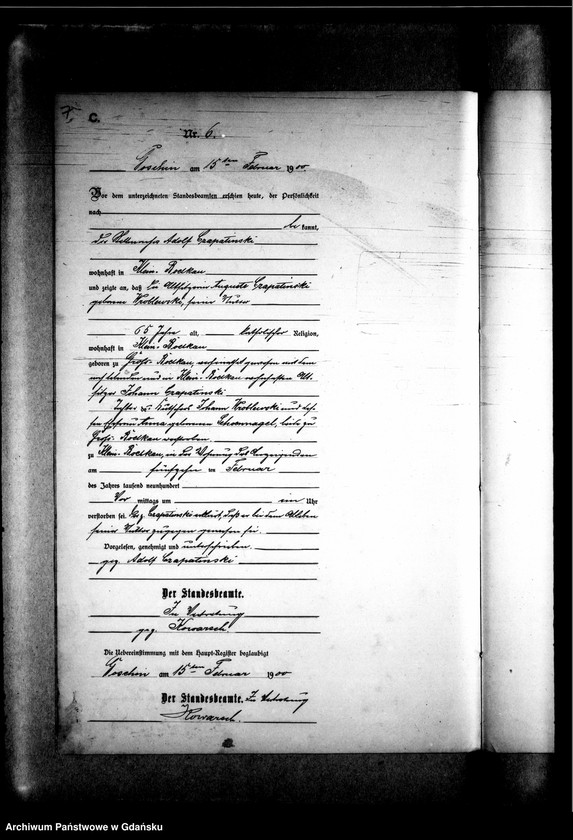 C.
Nr. 6.
Goschin am 15ten Februar 1900.
Vor dem unterzeichneten Standesbeamten erschien heute, der Persönlichkeit
nach
be kannt,
der Adolf Czapalinski
wohnhaft in Klein-Roslkau
und zeigte an, daß die Altsitzerin Auguste Czapalinski
geborene Wroblewski, seine Mutter
65 Jahre alt, katholischer Religion,
wohnhaft in Klein-Roslkau
geboren zu Groß-Roslkau, verheirathet gewesen mit dem
und in Klein-Roslkau verstorbenen Alt-
sitzer Johann Czapalinski
Tochter des Johann Wroblewski und des-
sen Ehefrau Anna geborenen Schoennagel, beide zu
Groß-Roslkau verstorben
zu Klein-Roslkau, in der Wohnung des Anzeigenden
am fünfzehn ten Februar
des Jahres tausend neunhundert
Vor mittags um ein Uhr
verstorben sei. Czapalinski erklärt, daß er bei dem Ableben
seiner Mutter zugegen gewesen sei.
Vorgelesen, genehmigt und unterschrieben
gez. Adolf Czapalinski
Der Standesbeamte.
In Vertretung
gez. Kowarsch.
Die Uebereinstimmung mit dem Haupt-Register beglaubigt
Goschin am 15ten Februar 1900
Der Standesbeamte. In Vertretung
Kowarsch.
Archiwum Państwowe w Gdańsku